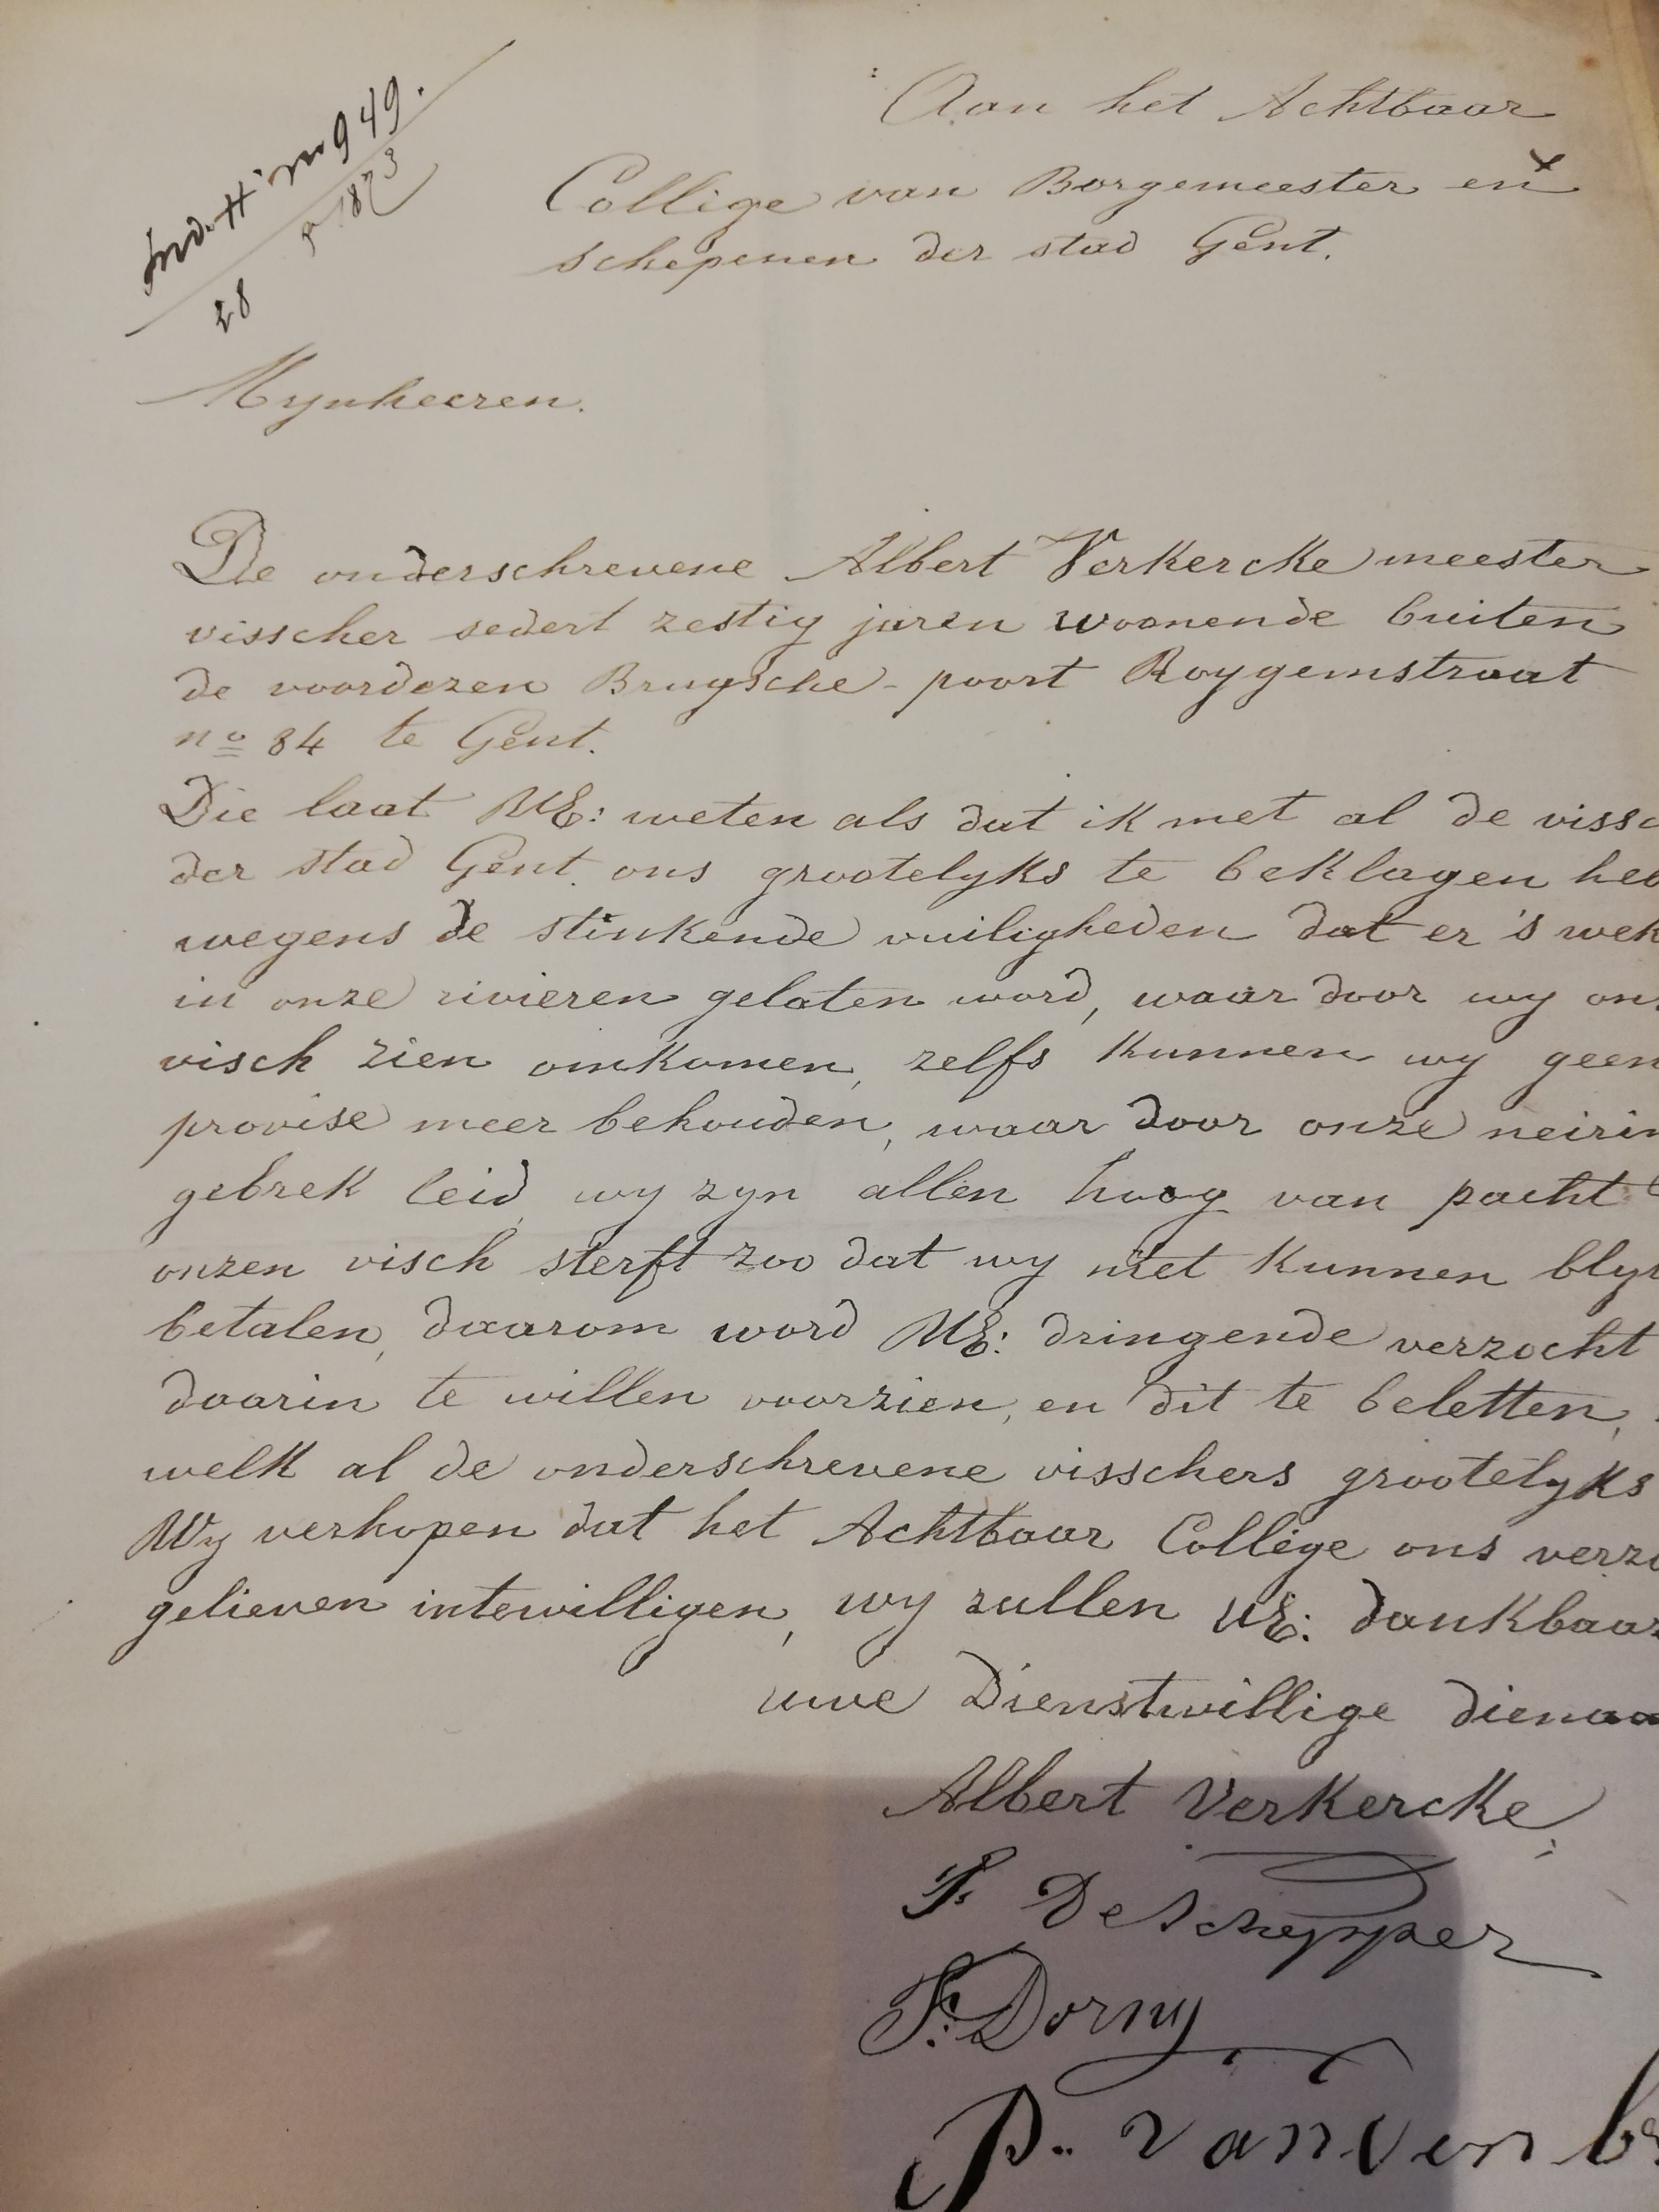 Ind. H. no 949.
28 1873
Aan het Achtbaar
Collige van Borgemeester en
schepenen der stad Gent.
Mynheeren.
De onderschrevene Albert Verkercke meester
visscher sedert zestig jaren woonende buiten
de voordezen Brugsche-poort Roygemstraat
no 84 te Gent.
Die laat UE: weten als dat ik met al de vissc
der stad Gent ons grootelyks te beklagen heb
wegens de stinkende vuiligheden dat er 's wek
in onze rivieren gelaten word, waar door wy on
visch zien omkomen, zelfs kunnen wy geen
provise meer behouden, waar door onze neirin
gebrek leid, wy zyn allen hoog van pacht
onzen visch sterft zoo dat wy niet kunnen bly
betalen, daarom word UE: dringende verzocht
daarin te willen voorzien, en dit te beletten,
welk al de onderschrevene visschers grootelyks
Wy verhopen dat het Achtbaar Collège ons verzo
gelieven intewilligen, wy zullen UE: dankbaar
uwe Dienstwillige dienaa
Albert Verkercke,
F DeSchepper
F. Dorny
P. Vanden b